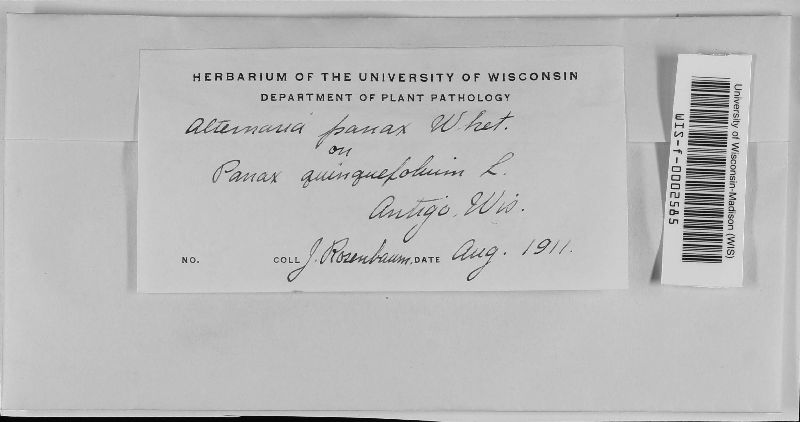 HERBARIUM OF THE UNIVERSITY OF WISCONSIN
DEPARTMENT OF PLANT PATHOLOGY
Alternaria panax Whet.
on
Panax quinquefolium L.
Antigo, Wis.
NO. COLL J. Rosenbaum, DATE Aug. 1911.
University of Wisconsin-Madison (WIS)
WIS-f-0002585